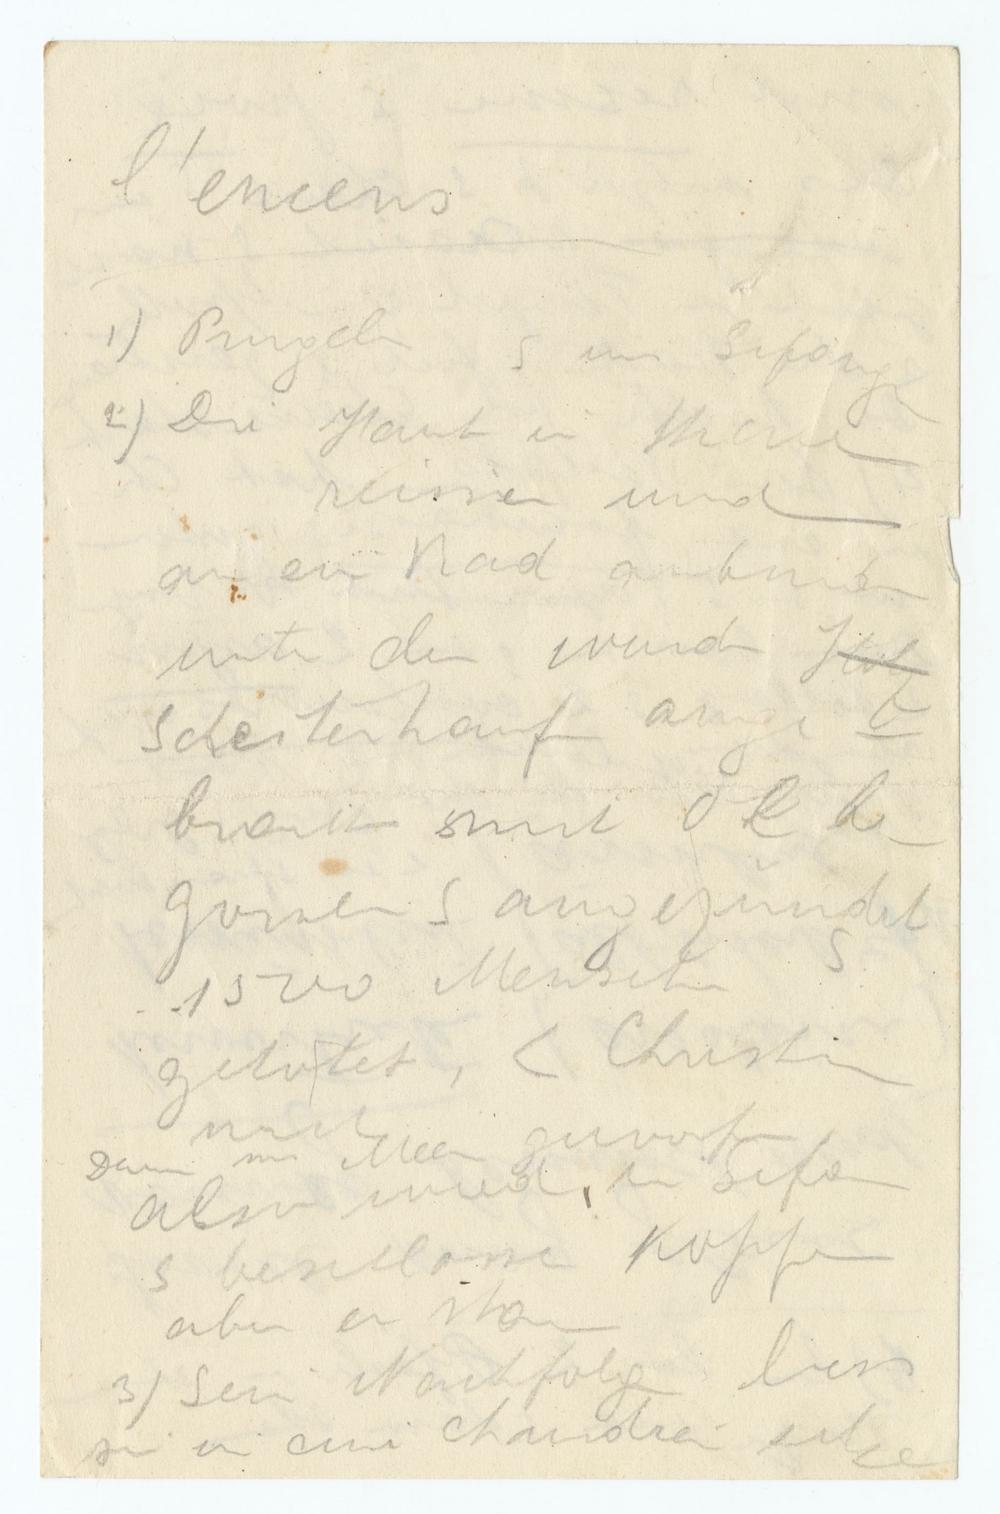 l'encens
1) Prugeln S im Gefäng
2) Die Haut in
reissen und
an ein Rad anbinden
unte den wurde
Scheiterhauf ange
bracht mit Öl be
gossen S angezündet
1500 Menschen S
getötet, Christin
Dann ins Meer geworfen
also wied, in Gefän
S beschlosse Kopfen
aber er
3) Sein Nachfolg liess
sie in eine